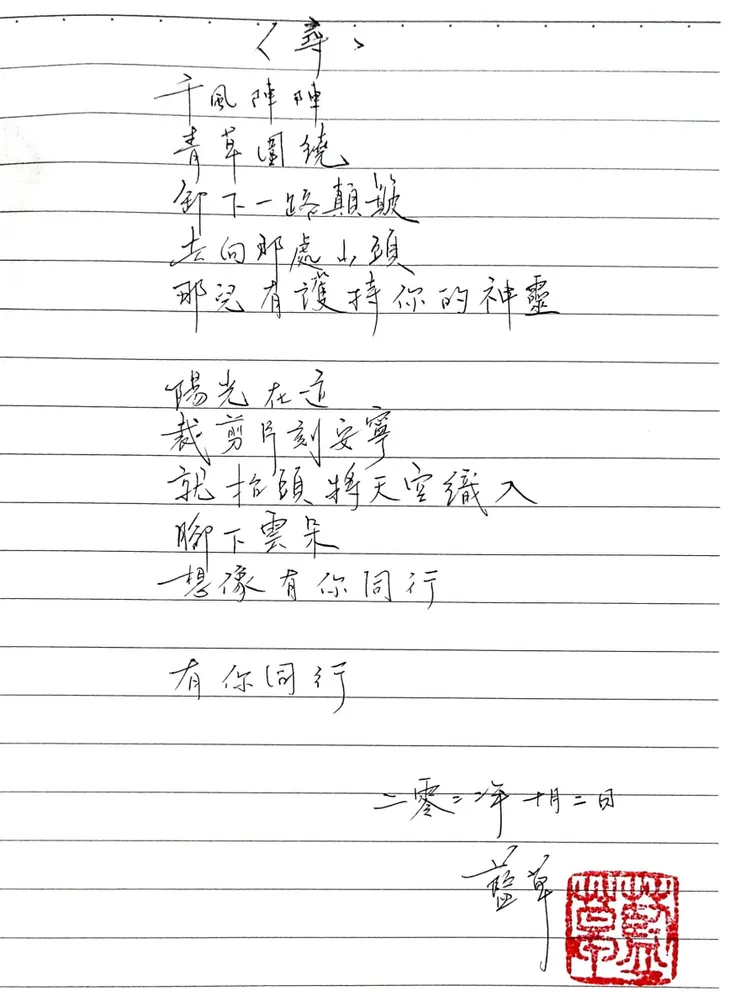 〈尋〉
千風陣陣
青草圍繞
卸下一路顛簸
去向那處山頭
那兒有護持你的神靈
陽光在這
裁剪片刻安寧
就抬頭將天空織入
腳下雲朵
想像有你同行
有你同行
二零二二年十月二日
藍草